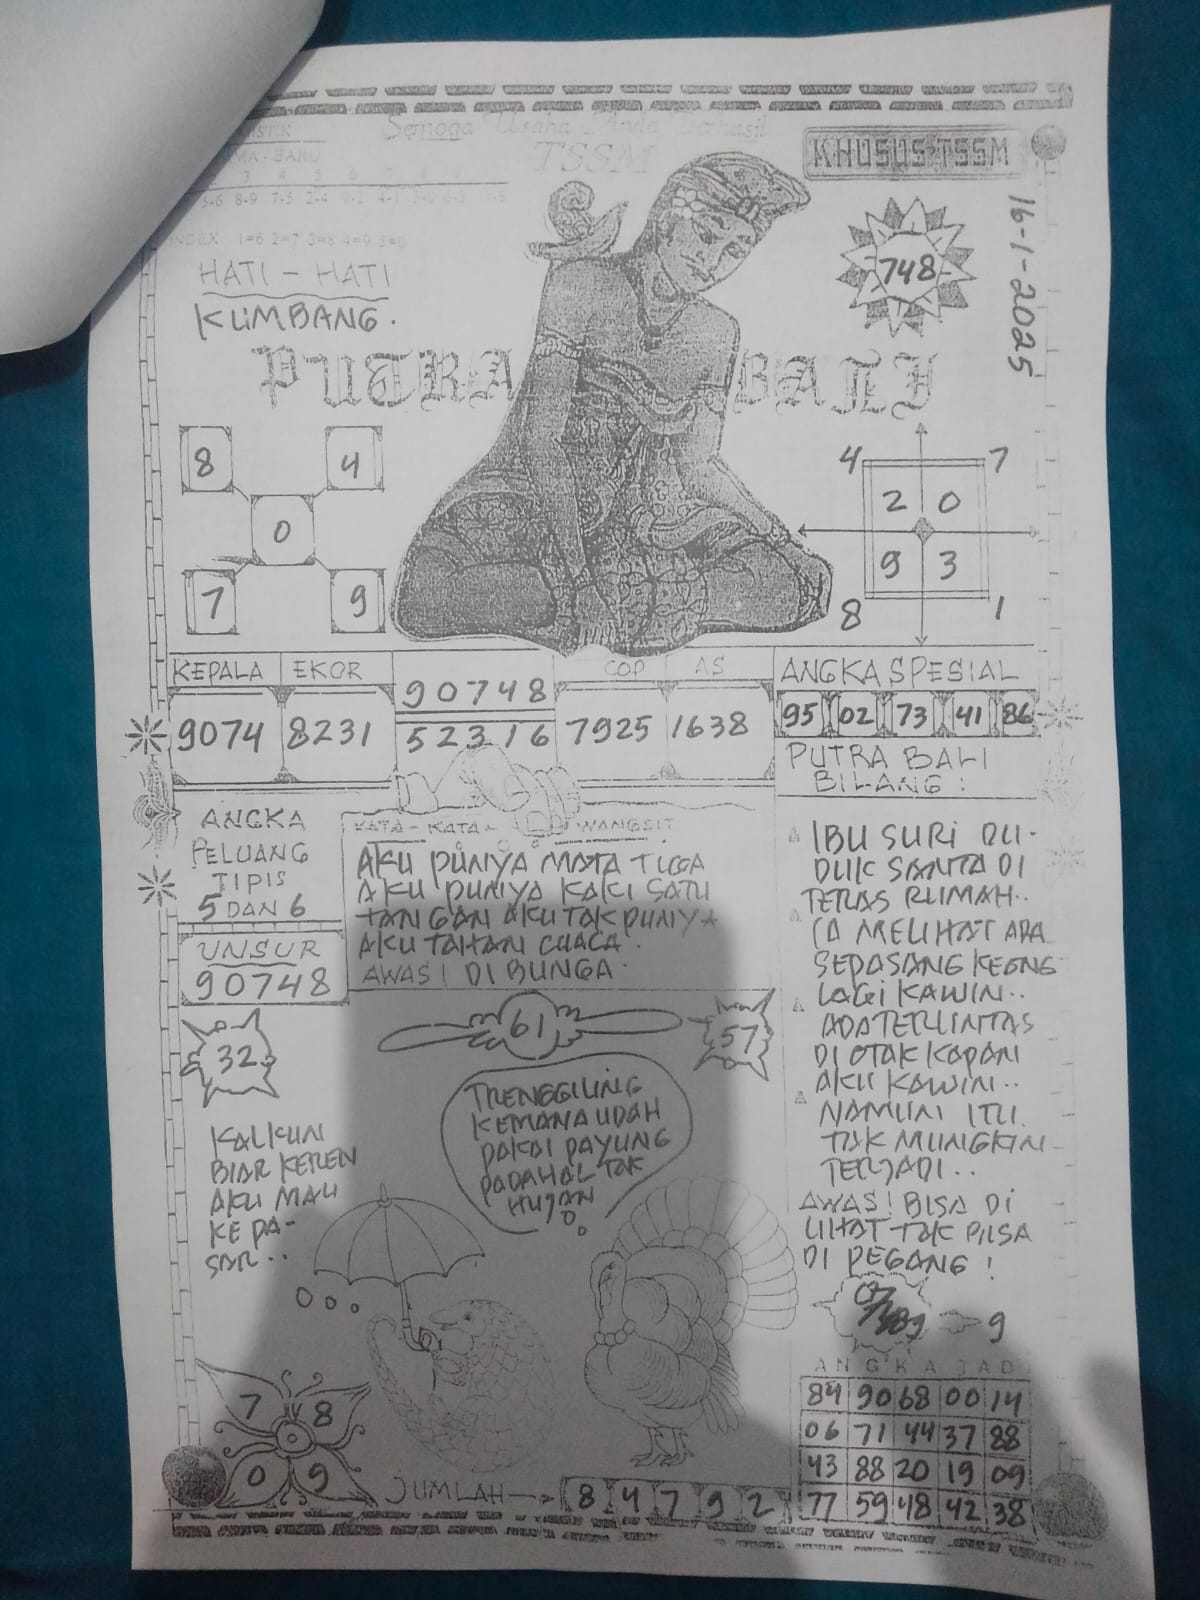 Semoga Usaha Anda Berhasil
TSSM
KHUSUS TSSM
16-1-2025
5-6 8-9 7-5 2-4
INDEX 1=6 2=7 3=8 4=9 5=0
HATI - HATI
KUMBANG.
748
PUTRA BALI
8 4
0
7 9
4 7
2 0
9 3
8 1
KEPALA EKOR COP AS
9074 8231 7925 1638
90748
52316
ANGKA SPESIAL
95 02 73 41 86
PUTRA BALI
BILANG !
ANGKA
PELUANG
TIPIS
5 DAN 6
UNSUR
90748
KATA - KATA WANGSIT
AKU PUNYA MATA TIGA
AKU PUNYA KAKI SATU
TANGAN AKU TAK PUNYA
AKU TAHAN CUACA.
AWAS! DI BUNGA.
IBU SURI DU-
DUK SANTA DI
TERAS RUMAH..
IA MELIHAT ADA
SEPASANG KEONG
LAGI KAWIN..
ADA TERLINTAS
DI OTAK KAPAN
AKU KAWIN..
NAMUN ITU
TAK MUNGKIN
TERJADI..
AWAS! BISA DI
LIHAT TAK BISA
DI PEGANG !
32
61
57
KALKUN
BIAR KEREN
AKU MAU
KE PA-
SAR..
TRENGGILING
KEMANA UDAH
PAKAI PAYUNG
PADAHAL TAK
HUJAN
9
7 8
0 9
JUMLAH
8 4 7 9 2
ANGKA JADI
84 90 68 00 14
06 71 44 37 88
43 88 20 19 09
77 59 48 42 38